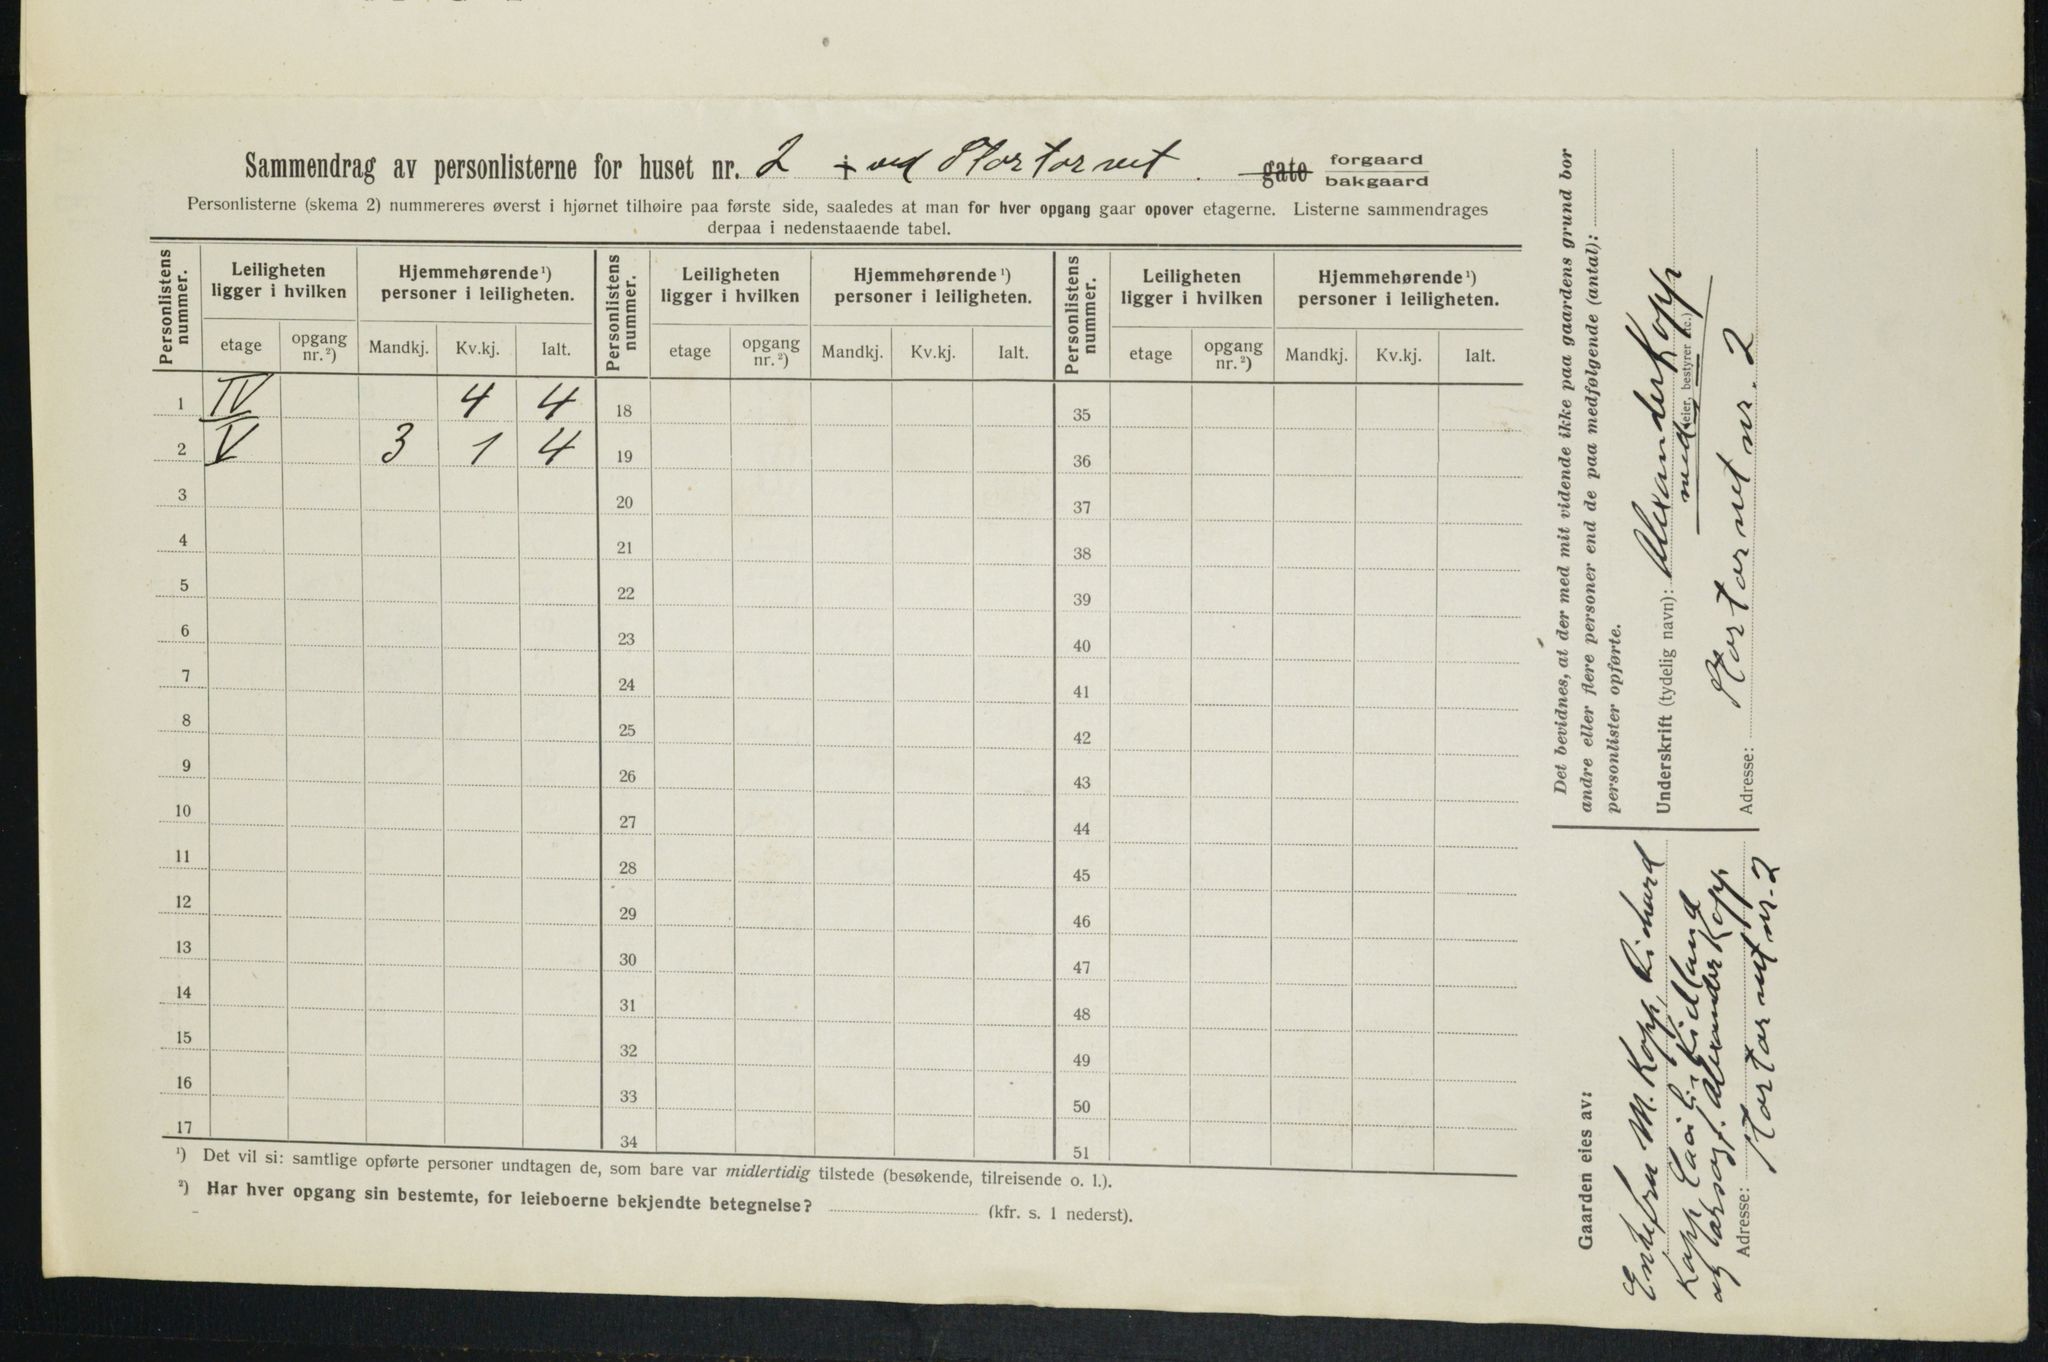 Sammendrag av personlisterne for huset nr. 2 i ved Stortorvet gate forgaard bakgaard
Personlisterne (skema 2) nummereres øverst i hjørnet tilhøire paa første side, saaledes at man for hver opgang gaar opover etagerne. Listerne sammendrages
derpaa i nedenstaaende tabel.
Personlistens nummer. Leiligheten ligger i hvilken Hjemmehørende¹) personer i leiligheten. Personlistens nummer. Leiligheten ligger i hvilken Hjemmehørende¹) personer i leiligheten. Personlistens nummer. Leiligheten ligger i hvilken Hjemmehørende¹) personer i leiligheten.
etage opgang nr.²) Mandkj. Kv.kj. Ialt. etage opgang nr.²) Mandkj. Kv.kj. Ialt. etage opgang nr.²) Mandkj. Kv.kj. Ialt.
1 IV 4 4 18 35
2 V 3 1 4 19 36
3 20 37
4 21 38
5 22 39
6 23 40
7 24 41
8 25 42
9 26 43
10 27 44
11 28 45
12 29 46
13 30 47
14 31 48
15 32 49
16 33 50
17 34 51
¹) Det vil si: samtlige opførte personer undtagen de, som bare var midlertidig tilstede (besøkende, tilreisende o. l.).
²) Har hver opgang sin bestemte, for leieboerne bekjendte betegnelse? (kfr. s. 1 nederst).
Det bevidnes, at der med mit vidende ikke paa gaardens grund bor
andre eller flere personer end de paa medfølgende (antal):
personlister opførte.
Underskrift (tydelig navn): Alexander Kopp
(eier, bestyrer etc.)
Adresse: Stortorvet nr. 2
Gaarden eies av:
Enkefru M. Kopp, Richard
Kopp, Kielland
og Alexander Kopp.
Adresse: Stortorvet nr. 2